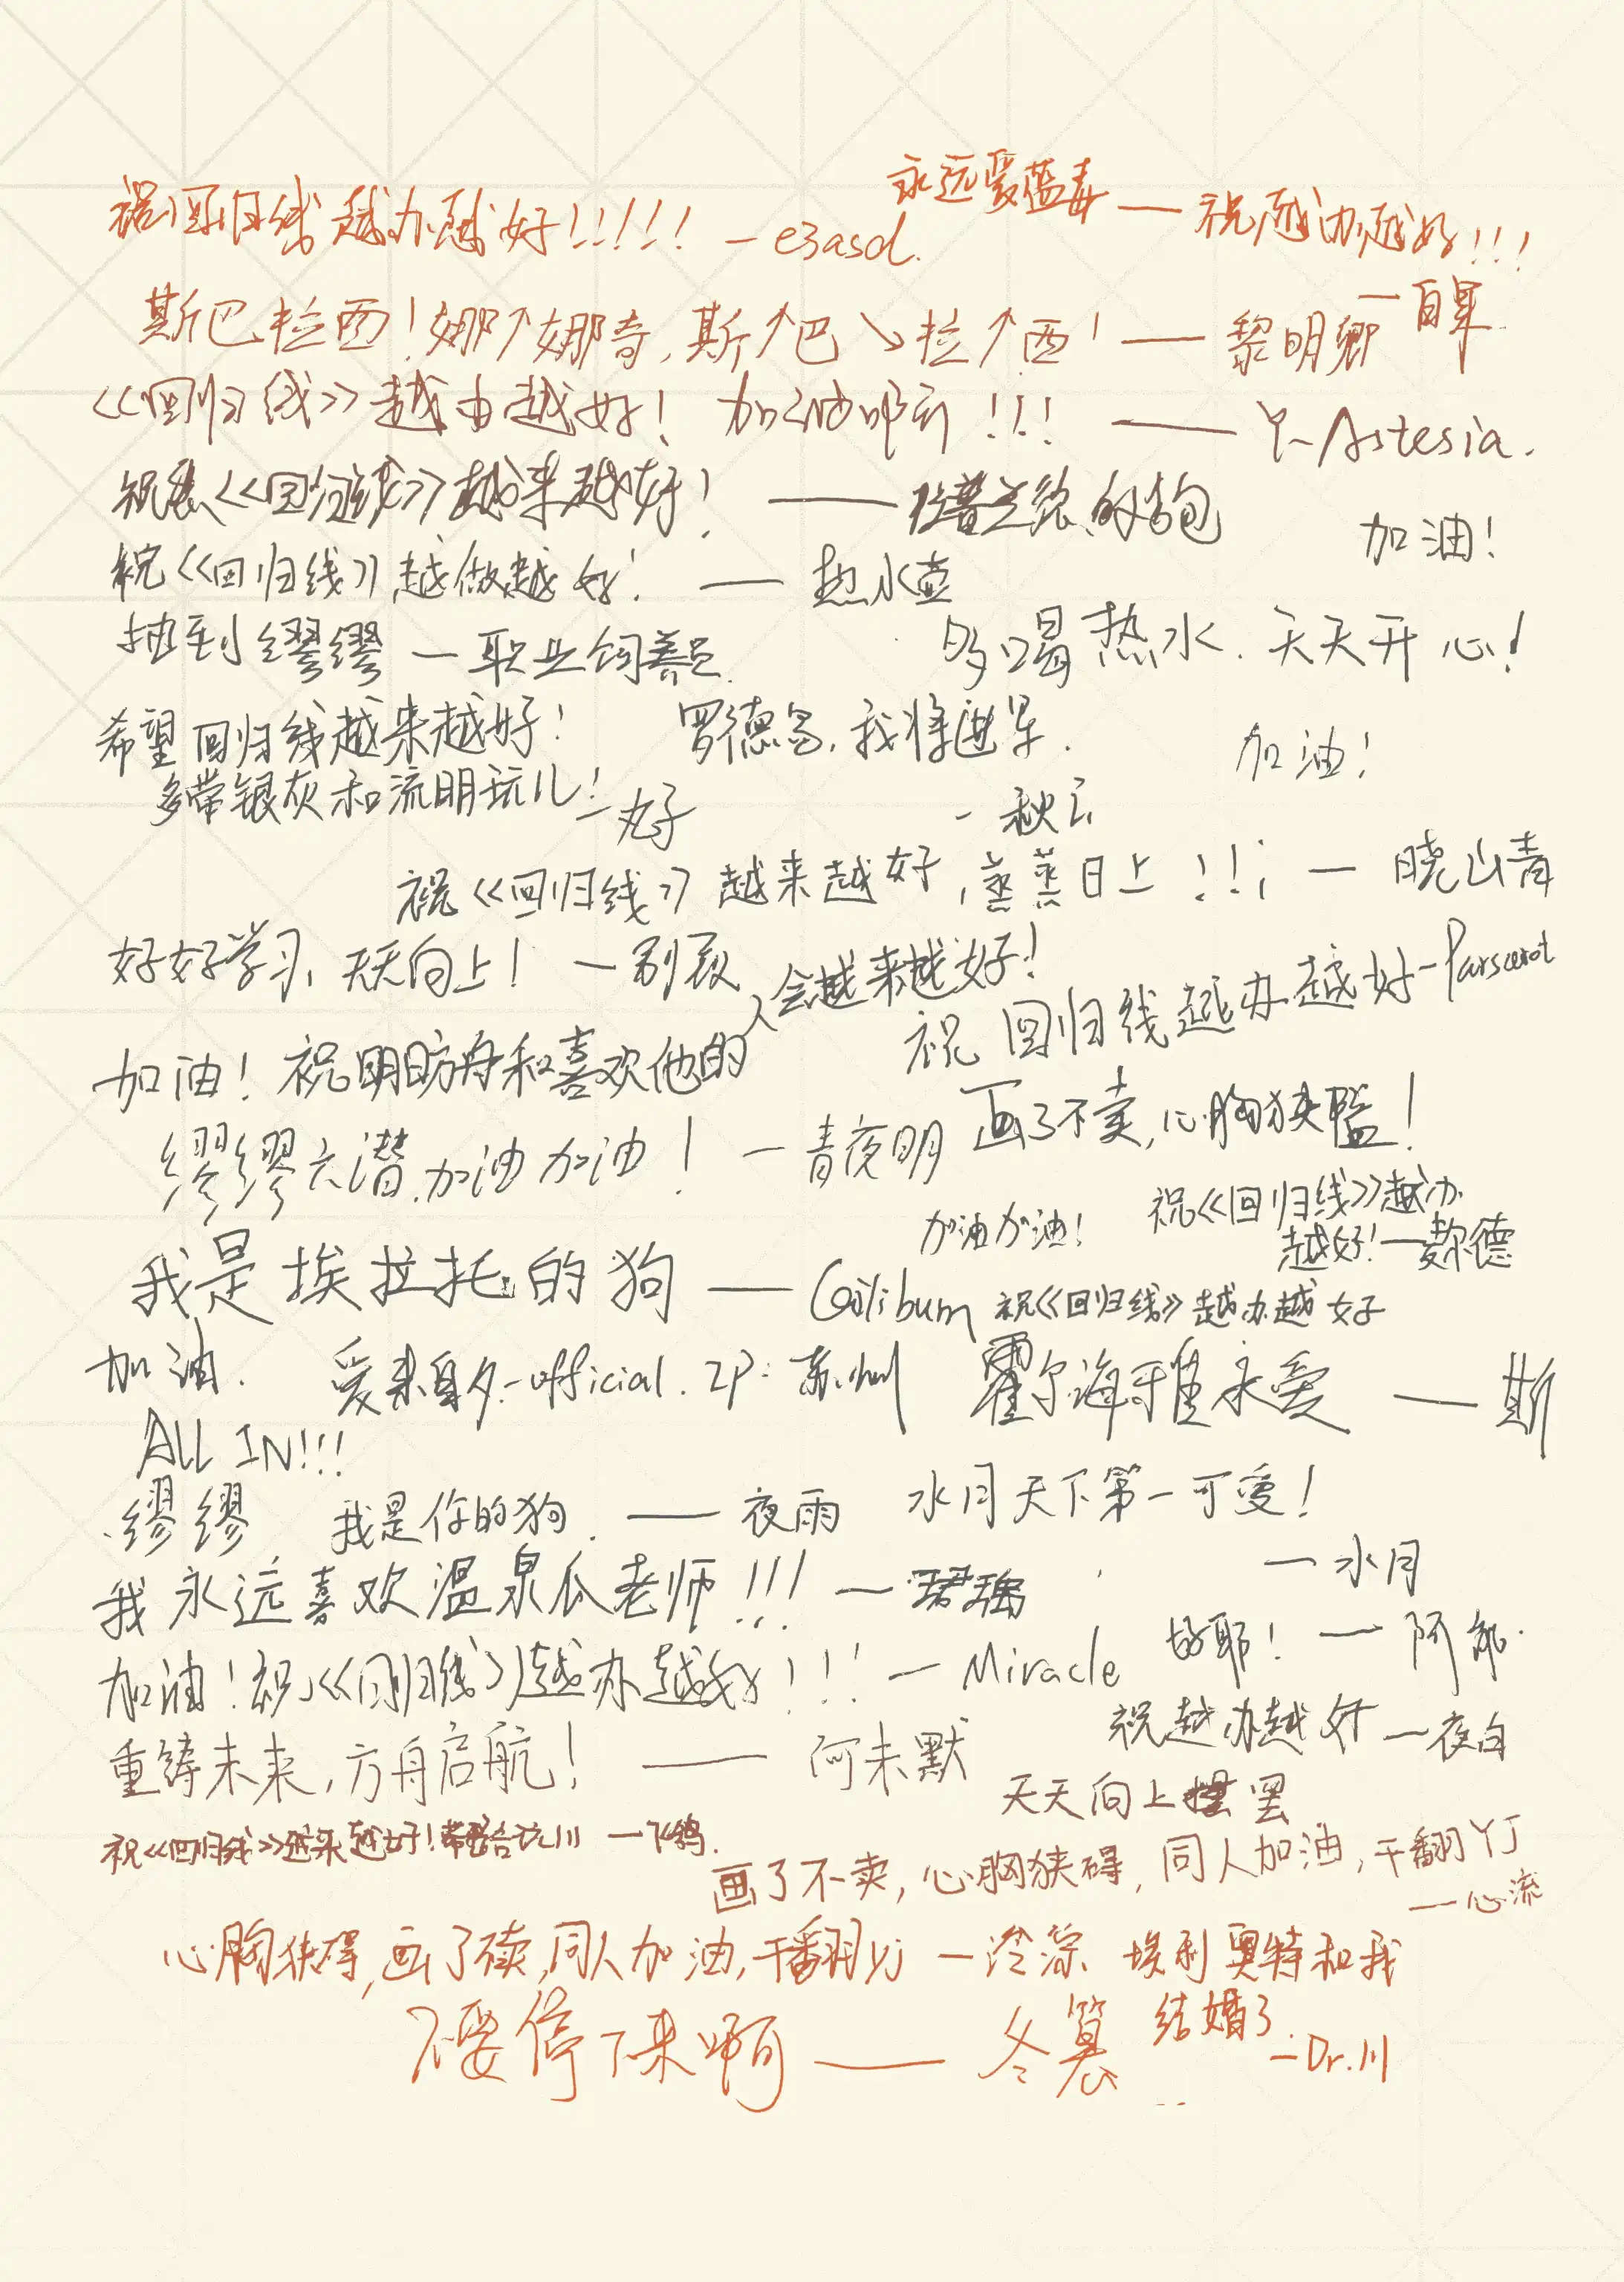 祝回归线越办越好!!!!! — e3asol.
永远爱蓝毒 — 祝越办越好!!!
— 白果.
斯巴拉西!娜↑娜奇,斯↗巴↘拉↑西! —— 黎明卿
《回归线》越办越好! 加油呀!!! —— Y-Astesia.
祝《回归线》越来越好! —— 拉普兰德的狗
加油!
祝《回归线》越做越好! —— 热水壶
多喝热水.天天开心!
抽到缪缪 — 职业饲养员.
希望回归线越来越好!
多带银灰和流明玩儿! — 丸子
罗德岛,我将进军.
— 秋云
加油!
祝《回归线》越来越好,蒸蒸日上!!! — 晓山青
好好学习,天天向上! — 别致
祝回归线越办越好 — Parscerot
加油! 祝明日方舟和喜欢他的人会越来越好!
画了不卖,心胸狭隘!
缪缪六潜.加油加油! — 青夜明
加油加油!
祝《回归线》越办
越好! — 麦尔德
我是埃拉托的狗 —— Gilibum
祝《回归线》越办越好
加油. 爱来自夕-official. IP:苏州
霍尔海雅永爱 —— 斯
ALL IN!!!
缪缪 我是你的狗. —— 夜雨
水月天下第一可爱!
— 水月
我永远喜欢温泉瓜老师!!! — 珺璃
好耶! — 阿郁.
加油!祝《回归线》越办越好!!! — Miracle
祝越办越好 — 夜白
重铸未来,方舟启航! —— 何未默
天天向上 罢
祝《回归线》越来越好! — 飞鸽.
画了不卖,心胸狭碍,同人加油,干翻YJ
— 心流
心胸狭碍,画了不卖,同人加油,干翻yj — 冷淙
埃利奥特和我
结婚了.
— Dr.川
不要停下来啊 —— 冬篱